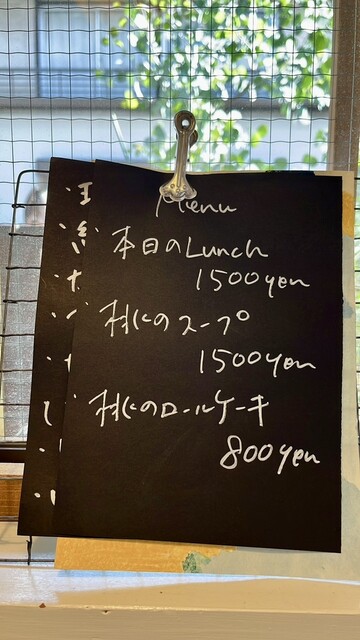 Menu
本日のLunch
1500yen
桃のスープ
1500yen
桃のロールケーキ
800yen